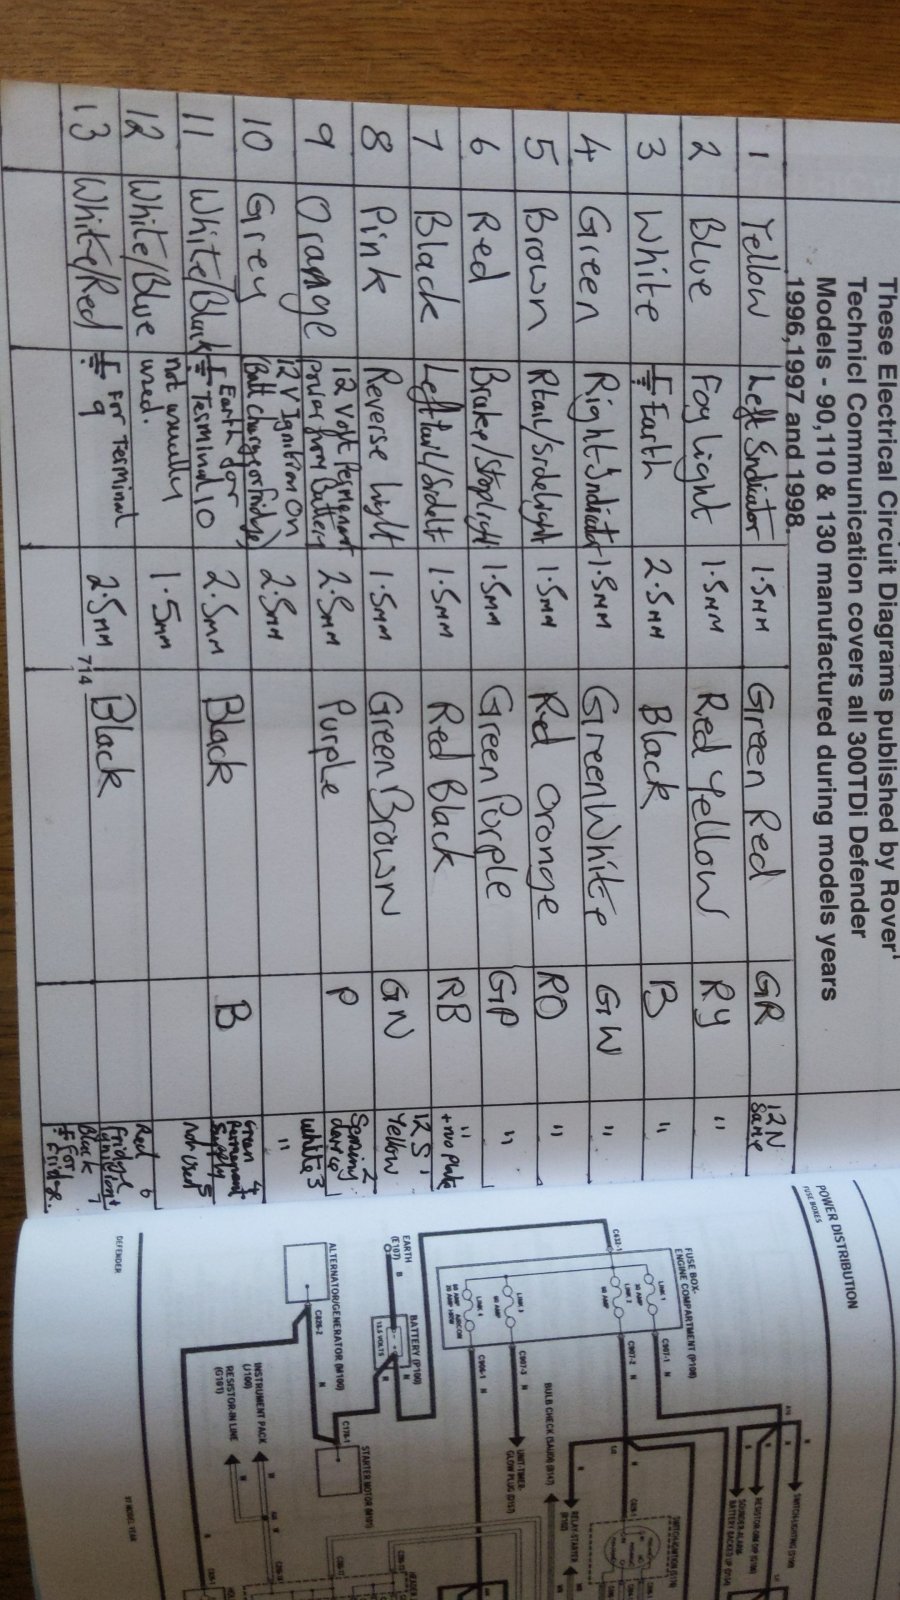 These Electrical Circuit Diagrams published by Rover'
Technicl Communication covers all 300TDi Defender
Models - 90,110 & 130 manufactured during models years
1996,1997 and 1998.
1 Yellow Left Indicator 1.5mm Green Red GR 12N Same
2 Blue Fog Light 1.5mm Red Yellow RY "
3 White Earth 2.5mm Black B "
4 Green Right Indicator 1.5mm Green White GW "
5 Brown Rtail/Sidelight 1.5mm Red Orange RO "
6 Red Brake/Stoplight 1.5mm Green Purple GP "
7 Black Left tail/Sidelt 1.5mm Red Black RB "
+ two plate
12S 1
8 Pink Reverse Light 1.5mm Green Brown GN Yellow
2
Sensing
device
9 Orange 12 Volt Permanent
power from Battery 2.5mm Purple P white 3
10 Grey 12V Ignition On
(Batt charge or fridge) 2.5mm "
4
Green
Permanent
Supply
11 White/Black Earth for
Terminal 10 2.5mm Black B 5
Not used
12 White/Blue not usually
used. 1.5mm Red 6
Fridge
ignition
13 White/Red For Terminal
9 2.5mm Black Black 7
For
Fridge.
714
POWER DISTRIBUTION
FUSE BOXES
FUSE BOX-
ENGINE COMPARTMENT (P108)
LINK 1
30 AMP
LINK 2
60 AMP
LINK 3
60 AMP
LINK 4
C632-1
C907-1 N
C907-2 N
C907-3 N
C906-1 N
EARTH
(E107) B
BATTERY (P100)
13.5 VOLTS
ALTERNATOR/GENERATOR (M100)
C826-2
C178-1
STARTER MOTOR (M101)
INSTRUMENT PACK
(J100)
RESISTOR-IN LINE
(G101)
BULB CHECK (SAUDI) (B147)
UNIT-TIMER-
GLOW PLUG (D157)
RELAY-STARTER
SWITCH-IGNITION
SWITCH-LIGHTING
SOUNDER-ALARM-
BATTERY BACKED UP
DEFENDER
97 MODEL YEAR